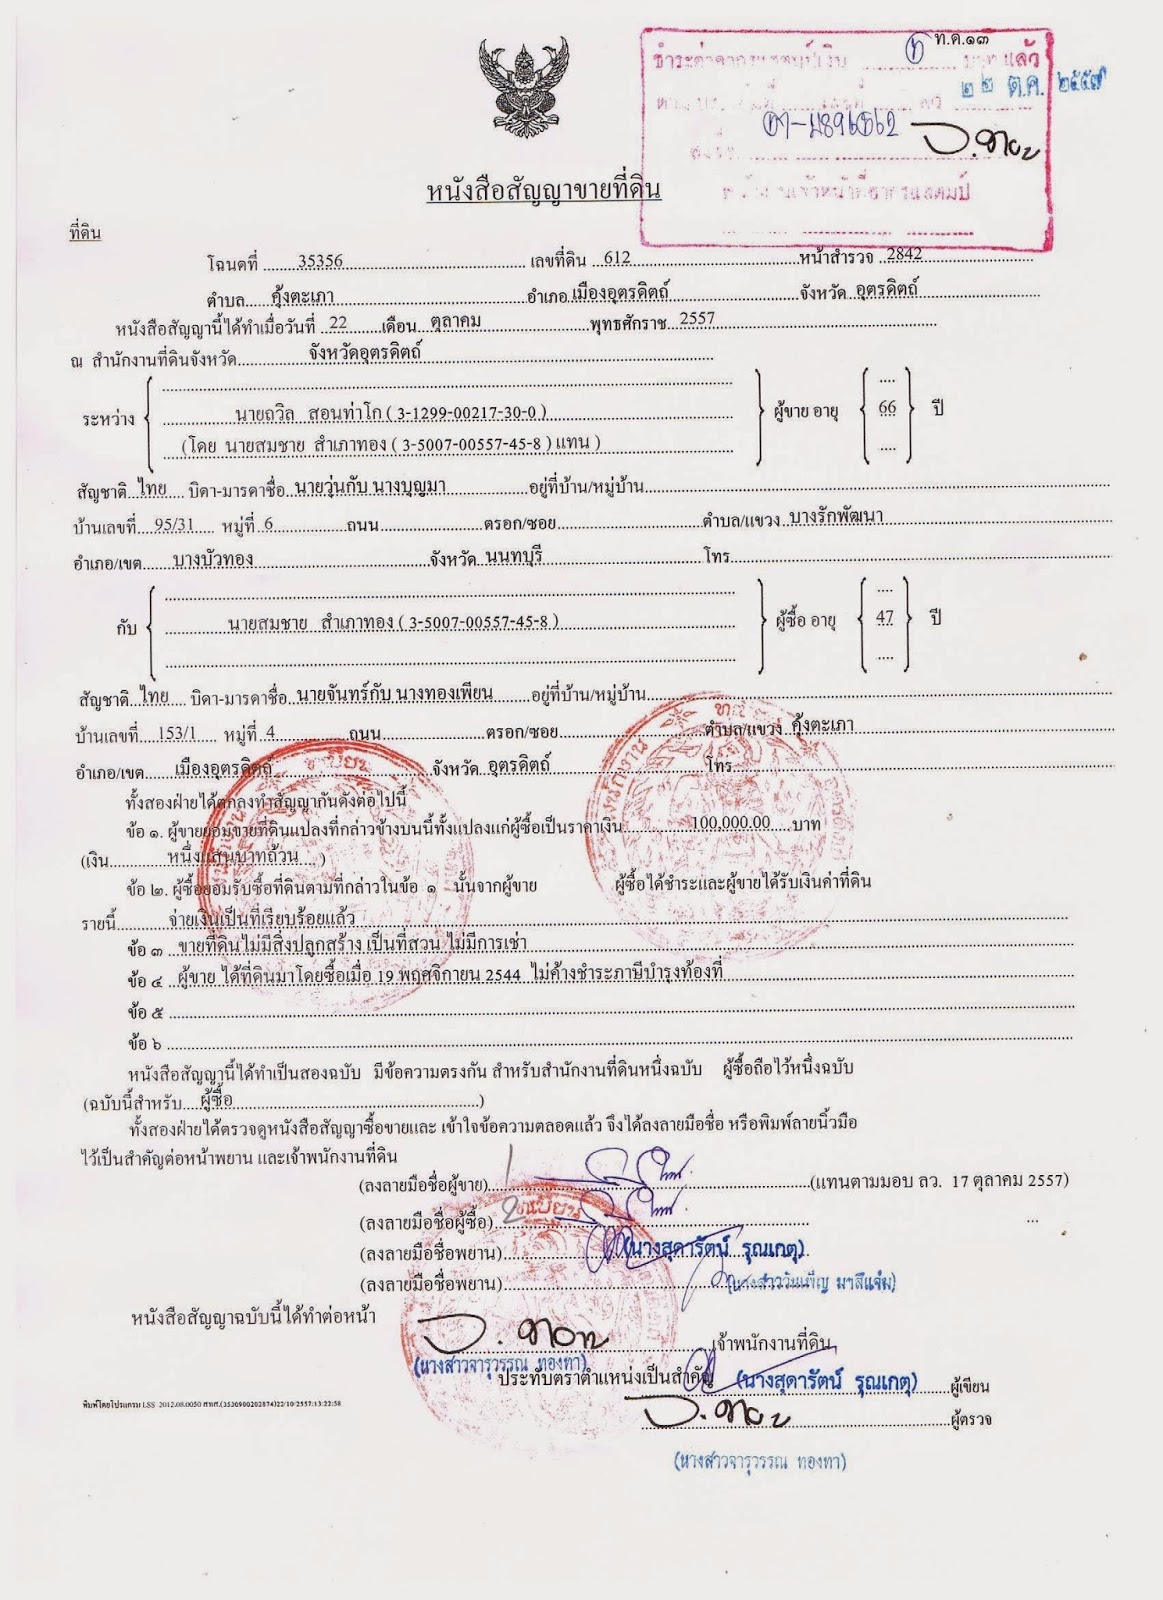 ท.ค.๑๓
ชำระค่าอากรแสตมป์เงิน บาท แล้ว
๒๒ ต.ค. ๒๕๕๗
พนักงานเจ้าหน้าที่อากรแสตมป์
หนังสือสัญญาขายที่ดิน
ที่ดิน
โฉนดที่ 35356 เลขที่ดิน 612 หน้าสำรวจ 2842
ตำบล คุ้งตะเภา อำเภอ เมืองอุตรดิตถ์ จังหวัด อุตรดิตถ์
หนังสือสัญญานี้ได้ทำเมื่อวันที่ 22 เดือน ตุลาคม พุทธศักราช 2557
ณ สำนักงานที่ดินจังหวัด จังหวัดอุตรดิตถ์
ระหว่าง นายถวิล สอนท่าโก ( 3-1299-00217-30-0 ) ผู้ขาย อายุ 66 ปี
(โดย นายสมชาย สำเภาทอง ( 3-5007-00557-45-8 ) แทน )
สัญชาติ ไทย บิดา-มารดาชื่อ นายวุ่นกับ นางบุญมา อยู่ที่บ้าน/หมู่บ้าน
บ้านเลขที่ 95/31 หมู่ที่ 6 ถนน ตรอก/ซอย ตำบล/แขวง บางรักพัฒนา
อำเภอ/เขต บางบัวทอง จังหวัด นนทบุรี โทร
กับ นายสมชาย สำเภาทอง ( 3-5007-00557-45-8 ) ผู้ซื้อ อายุ 47 ปี
สัญชาติ ไทย บิดา-มารดาชื่อ นายจันทร์กับ นางทองเพียน อยู่ที่บ้าน/หมู่บ้าน
บ้านเลขที่ 153/1 หมู่ที่ 4 ถนน ตรอก/ซอย ตำบล/แขวง คุ้งตะเภา
อำเภอ/เขต เมืองอุตรดิตถ์ จังหวัด อุตรดิตถ์ โทร
ทั้งสองฝ่ายได้ตกลงทำสัญญากันดังต่อไปนี้
ข้อ ๑. ผู้ขายยอมขายที่ดินแปลงที่กล่าวข้างบนนี้ทั้งแปลงแก่ผู้ซื้อเป็นราคาเงิน 100,000.00 บาท
(เงิน หนึ่งแสนบาทถ้วน )
ข้อ ๒. ผู้ซื้อยอมรับซื้อที่ดินตามที่กล่าวในข้อ ๑ นั้นจากผู้ขาย ผู้ซื้อได้ชำระและผู้ขายได้รับเงินค่าที่ดิน
รายนี้ จ่ายเงินเป็นที่เรียบร้อยแล้ว
ข้อ ๓ ขายที่ดินไม่มีสิ่งปลูกสร้าง เป็นที่สวน ไม่มีการเช่า
ข้อ ๔ ผู้ขาย ได้ที่ดินมาโดยซื้อเมื่อ 19 พฤศจิกายน 2544 ไม่ค้างชำระภาษีบำรุงท้องที่
ข้อ ๕
ข้อ ๖
หนังสือสัญญานี้ได้ทำเป็นสองฉบับ มีข้อความตรงกัน สำหรับสำนักงานที่ดินหนึ่งฉบับ ผู้ซื้อถือไว้หนึ่งฉบับ
(ฉบับนี้สำหรับ ผู้ซื้อ )
ทั้งสองฝ่ายได้ตรวจดูหนังสือสัญญาซื้อขายและ เข้าใจข้อความตลอดแล้ว จึงได้ลงลายมือชื่อ หรือพิมพ์ลายนิ้วมือ
ไว้เป็นสำคัญต่อหน้าพยาน และเจ้าพนักงานที่ดิน
(ลงลายมือชื่อผู้ขาย) (แทนตามมอบ ลว. 17 ตุลาคม 2557)
(ลงลายมือชื่อผู้ซื้อ) ...
(ลงลายมือชื่อพยาน) (นางสุดารัตน์ รุณเกตุ)
(ลงลายมือชื่อพยาน) (นางสาววันเพ็ญ มาสีแจ่ม)
หนังสือสัญญาฉบับนี้ได้ทำต่อหน้า เจ้าพนักงานที่ดิน
(นางสาวจารุวรรณ ทองทา)
ประทับตราตำแหน่งเป็นสำคัญ (นางสุดารัตน์ รุณเกตุ) ผู้เขียน
พิมพ์โดยโปรแกรม LSS 2012.08.0050 สทส.(3530900202874)22/10/2557:13:22:58
ผู้ตรวจ
(นางสาวจารุวรรณ ทองทา)